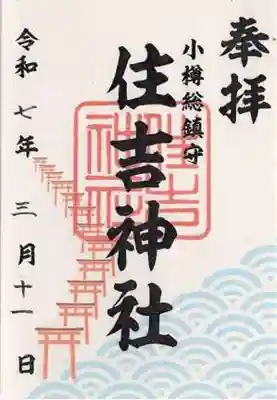 奉拝
小樽総鎮守
住吉神社
令和七年三月十一日